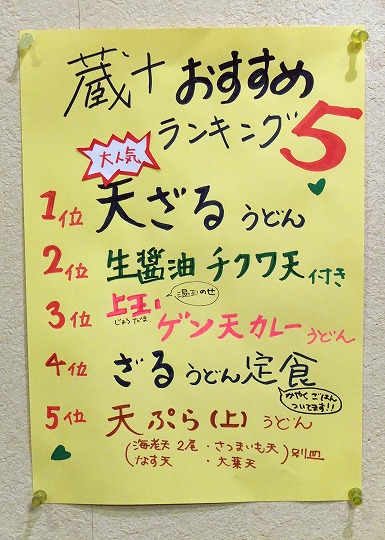 蔵十 おすすめ
ランキング 5
大人気
1位 天ざるうどん
2位 生醤油 チクワ天付き
3位 上玉 ゲン天カレーうどん
じょうたま
温玉のせ
4位 ざるうどん定食
かやくごはん
ついてます!!
5位 天ぷら(上)うどん
(海老天 2尾・さつまいも天
なす天 ・大葉天)別皿